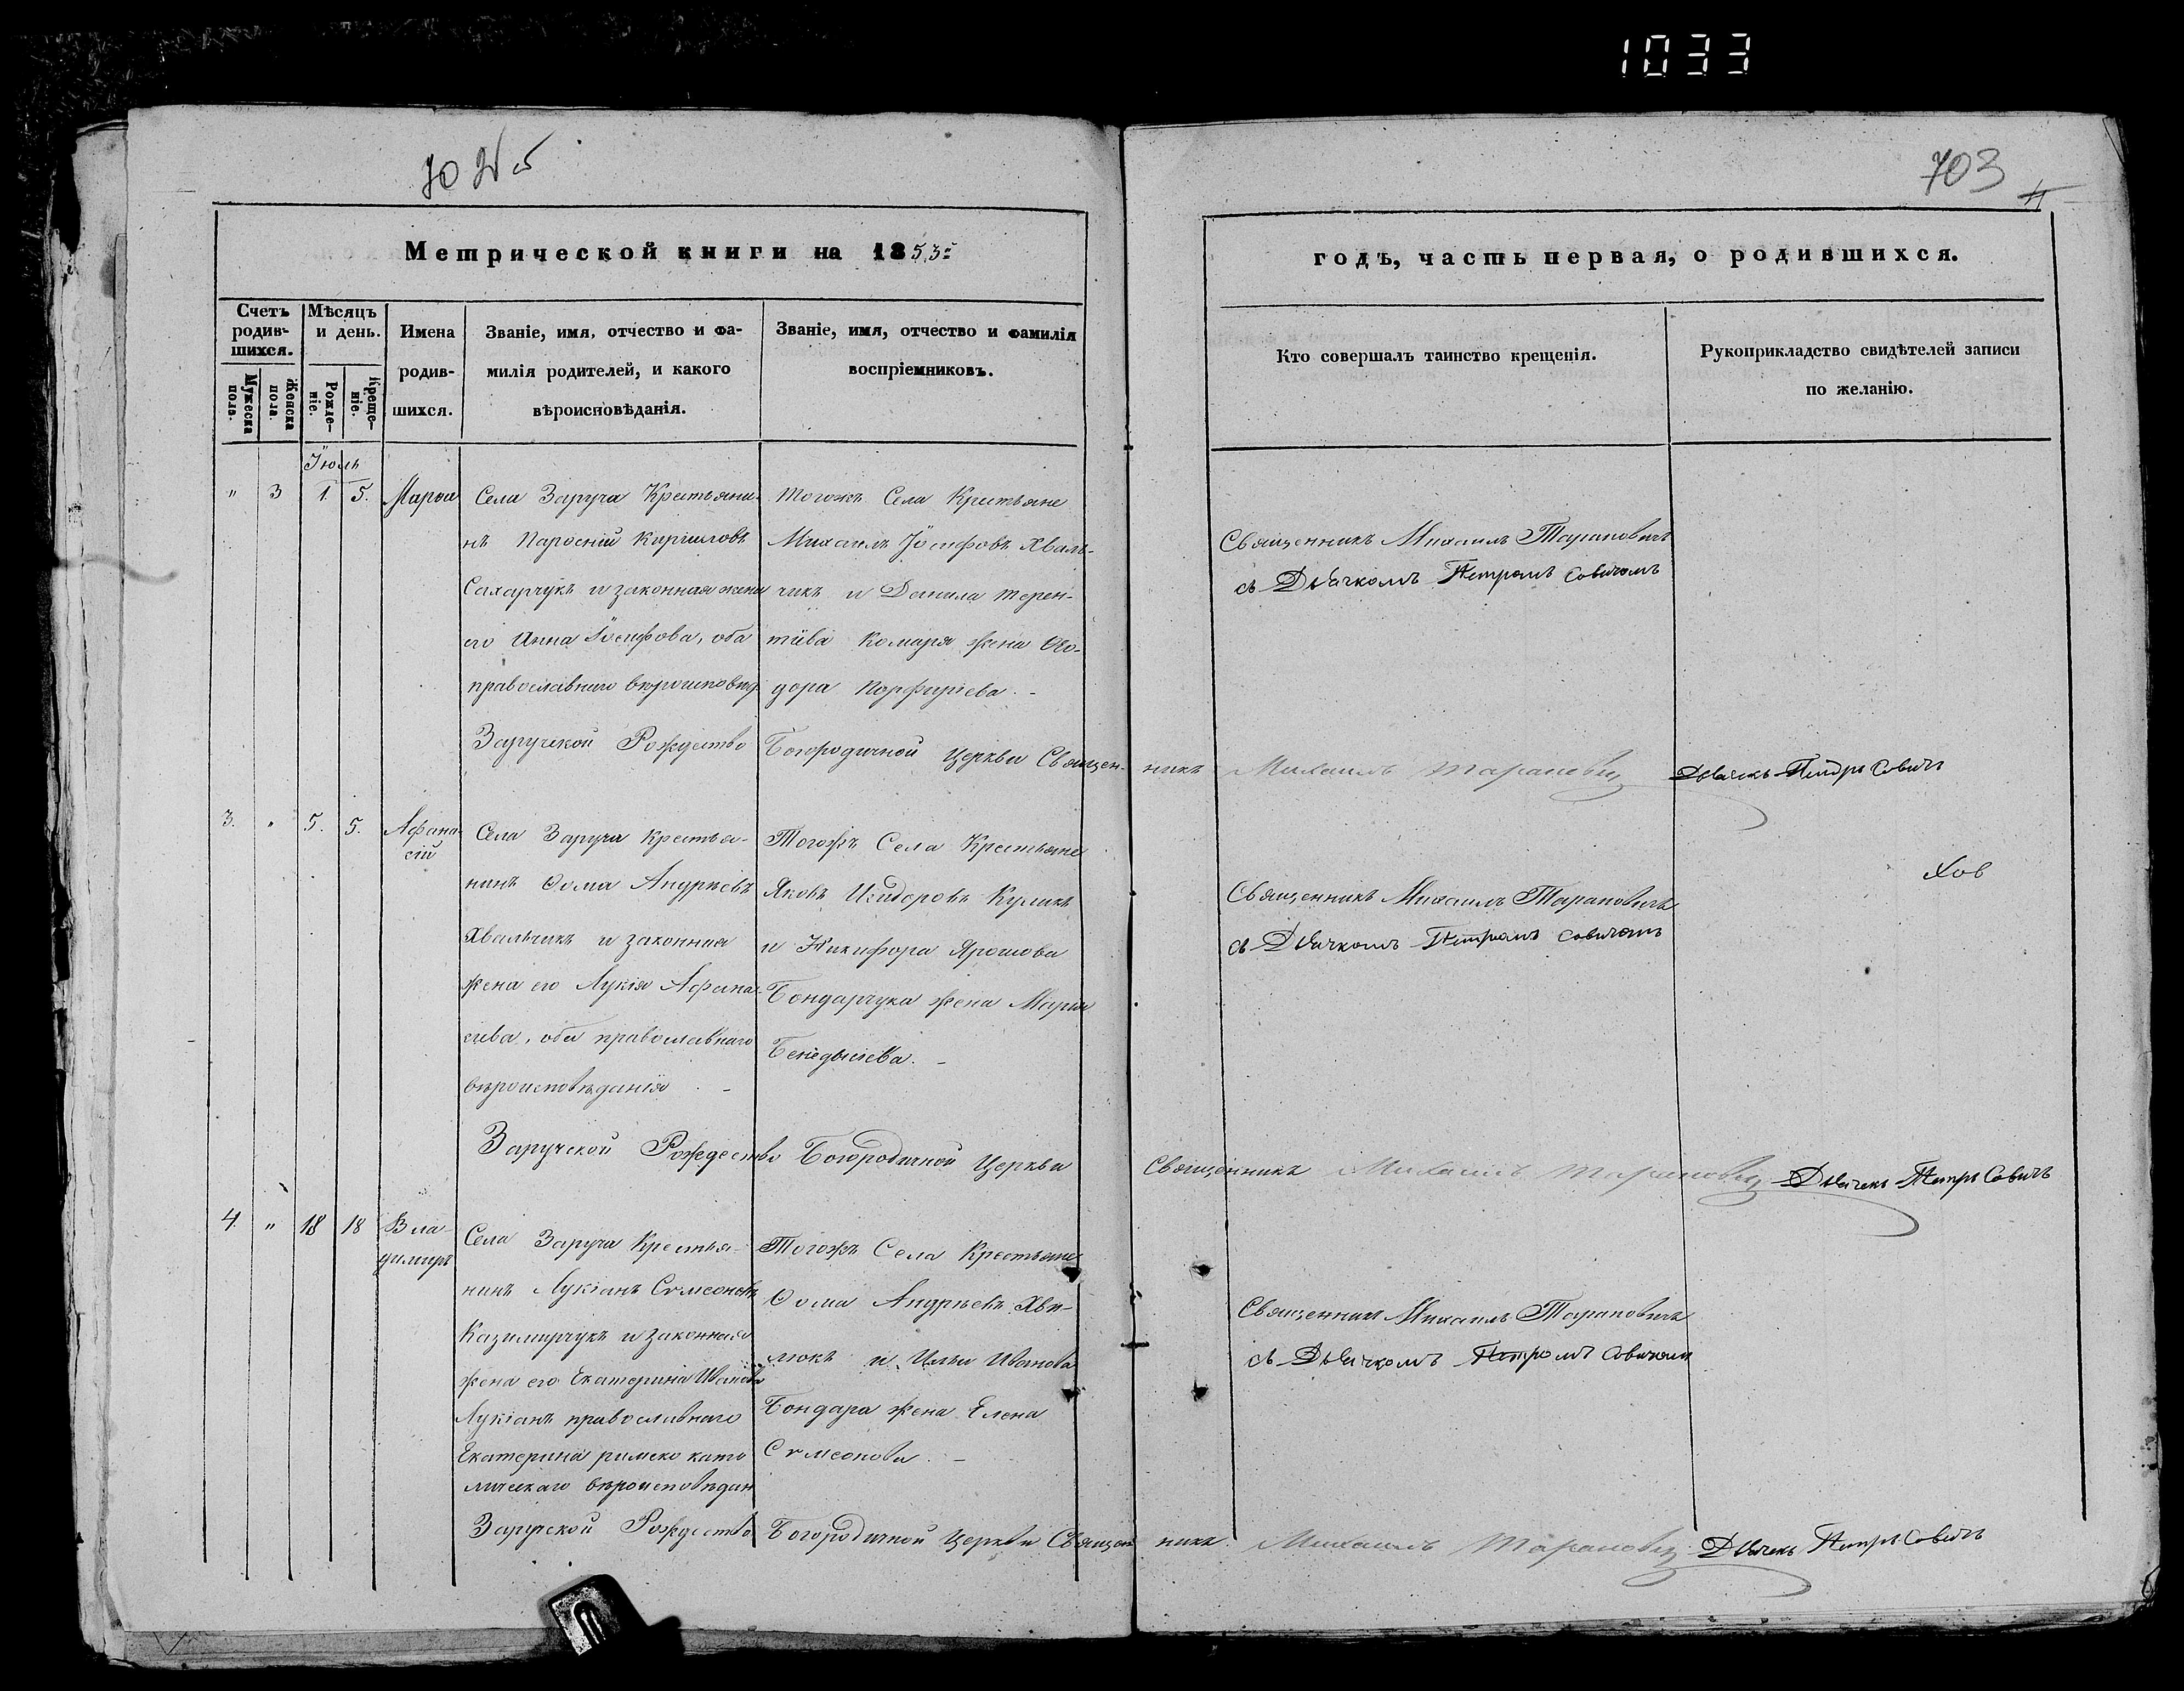 1033
703
Метрической книги на 1853
годъ, часть первая, о родившихся.
Счетъ родив-шихся.
Мужеска пола.
Женска пола.
Мѣсяцъ и день.
Рожде-ніе.
Креще-ніе.
Имена
родив-
шихся.
Званіе, имя, отчество и фа-
милія родителей, и какого
вѣроисповѣданія.
Званіе, имя, отчество и фамилія
воспріемниковъ.
Кто совершалъ таинство крещенія.
Рукоприкладство свидѣтелей записи
по желанію.
Іюль
" 3 1. 5. Марѳа
Села Заруча Крестьяни-
нъ Кариловъ
Сахарчукъ и законная жена
его Анна Іосифова, оба
православнаго вѣроисповѣд.
Тогожъ Села Крестьяне
Михаилъ Іосифовъ Хваль-
чикъ и Данила Терен-
тіева Комаря жена Ѳео-
дора Порфиріева. -
Священникъ Михаилъ Тарановичъ
съ Дьячкомъ Петромъ Совичомъ
Заручской Рождество Богородичной Церкви Священ-никъ Михаилъ Тарановичъ Дьячекъ Петръ Совичъ
3. " 5. 5. Афана-
сій
Села Заруча Крестья-
нинъ Ѳома Андрѣевъ
Хвальчикъ и законная
жена его Лукія Афана-
сіева, оба православнаго
вѣроисповѣданія -
Тогожъ Села Крестьяне
Яковъ Исидоровъ Куликъ
и Никифора Ярошова
Бондарчука жена Марія
-
Хов
Священникъ Михаилъ Тарановичъ
съ Дьячкомъ Петромъ Совичомъ
Заручской Рождество Богородичной Церкви Священникъ Михаилъ Тарановичъ Дьячекъ Петръ Совичъ
4. " 18 18 Вла-
димиръ
Села Заруча Крестья-
нинъ Лукіанъ Сѵмеоновъ
Казимирчукъ и законная
жена его Екатерина Иванова
Лукіанъ православнаго
Екатерина римско като
лическаго вѣроисповѣдан
Тогожъ Села Крестьяне
Ѳома Андрѣевъ Хва-
люкъ и Ильи Иванова
Бондара жена Елена
Сѵмеонова. -
Священникъ Михаилъ Тарановичъ
съ Дьячкомъ Петромъ Совичомъ
Заручской Рождество Богородичной Церкви Священ никъ Михаилъ Тарановичъ Дьячекъ Петръ Совичъ